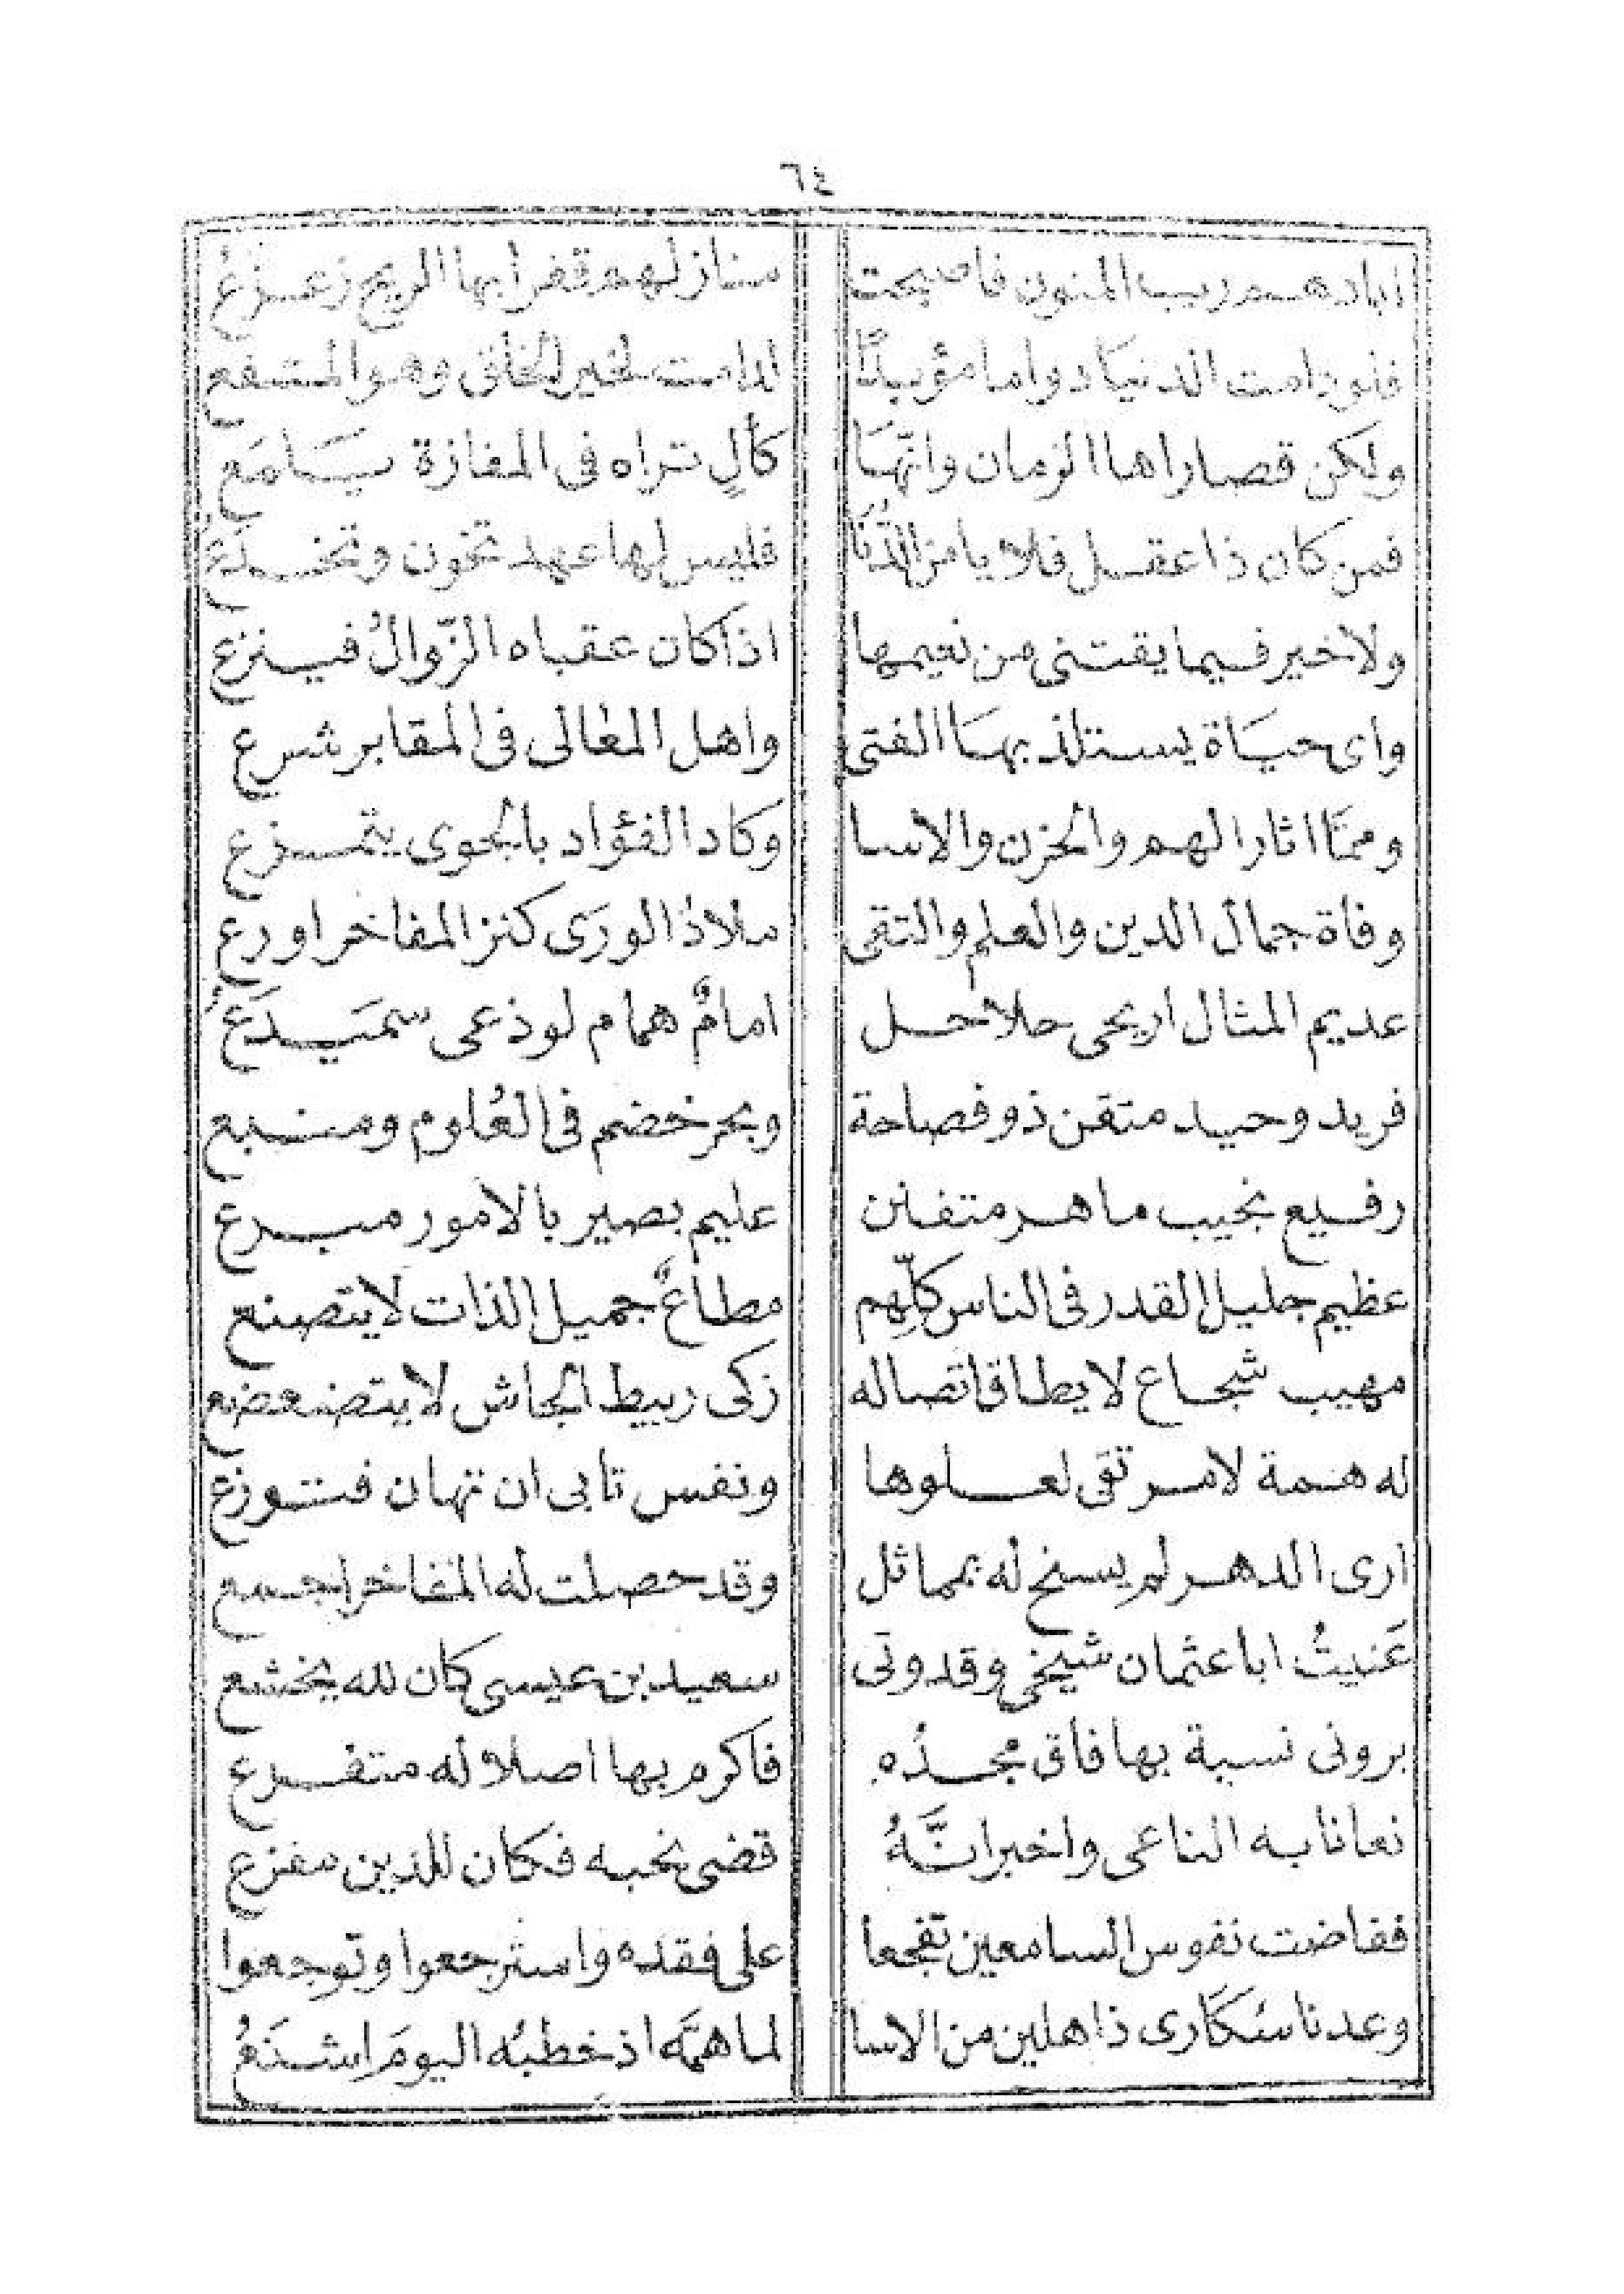 ٦٤
ابادهم ريب المنون فاصبحت منازلهم قفرا بها الريح زعزع
فلو دامت الدنيا دواما مؤبدًا لدامت لخير الخلق وهو المشفع
ولكن قصاراها الزمان وانّهَا كآلٍ تراه فى المفازة يَلمَع
فمن كان ذا عقل فلا يامن الدُّنَا فليس لها عهد تخون وتخدع
ولا خير فيما يقتنى من نعيمها اذا كان عقباه الزّوالُ فينزع
واى حيَاة يستلذ بهَا الفتى واهل المعالى فى المقابر شرع
وممّا اثار الهم والحزن والاسا وكاد الفؤاد بالجوى يتمزع
وفاة جمال الدين والعلم والتقى ملاذ الورَى كنز المفاخر اورع
عديم المثال اريحى حلاحل امامٌ همام لوذعى سمَيدَعُ
فريد وحيد متقن ذو فصاحة وبحر خضم فى العُلوم ومنبع
رفيع نجيب ماهر متفنن عليم بصير بالامور مبرع
عظيم جليل القدر فى الناس كلِّهم مطاعٌ جميل الذات لا يتصنع
مهيب شجاع لا يطاق اتصاله زكى ربيط الجاش لا يتضعضع
له همة لا مرتقى لعلوها ونفس تابى ان تهان فتوزع
ارى الدهر لم يسنح له بمماثل وقد حصلت له المفاخر اجمع
عَنيتُ ابا عثمان شيخى وقدوتى سعيد بن عيسى كان لله يخشع
برونى نسبة بها فاق مجدُه فاكرم بها اصلا له متفرع
نعانا به الناعى واخبر انَّهُ قضى نحبه فكان للدين مفزع
ففاضت نفوس السامعين تفجعا على فقده واسترجعوا وتوجعوا
وعدنا سُكَارى ذاهلين من الاسا لما همَّه اذ خطبُه اليومَ اشنَعُ